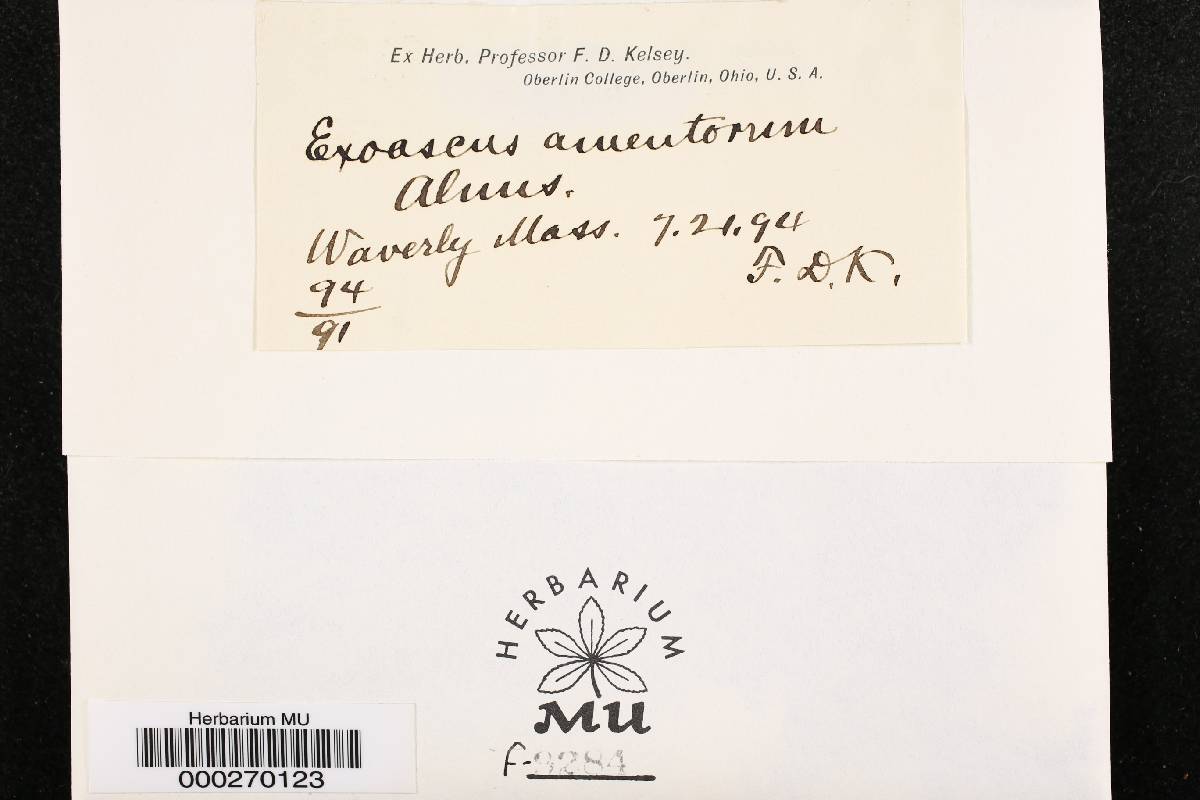 Ex Herb. Professor F. D. Kelsey.
Oberlin College, Oberlin, Ohio, U. S. A.
Exoascus amentorum
Alnus.
Waverly Mass. 7.21.94
F. D. K.
94
91
HERBARIUM
MU
Herbarium MU
000270123
f-9284